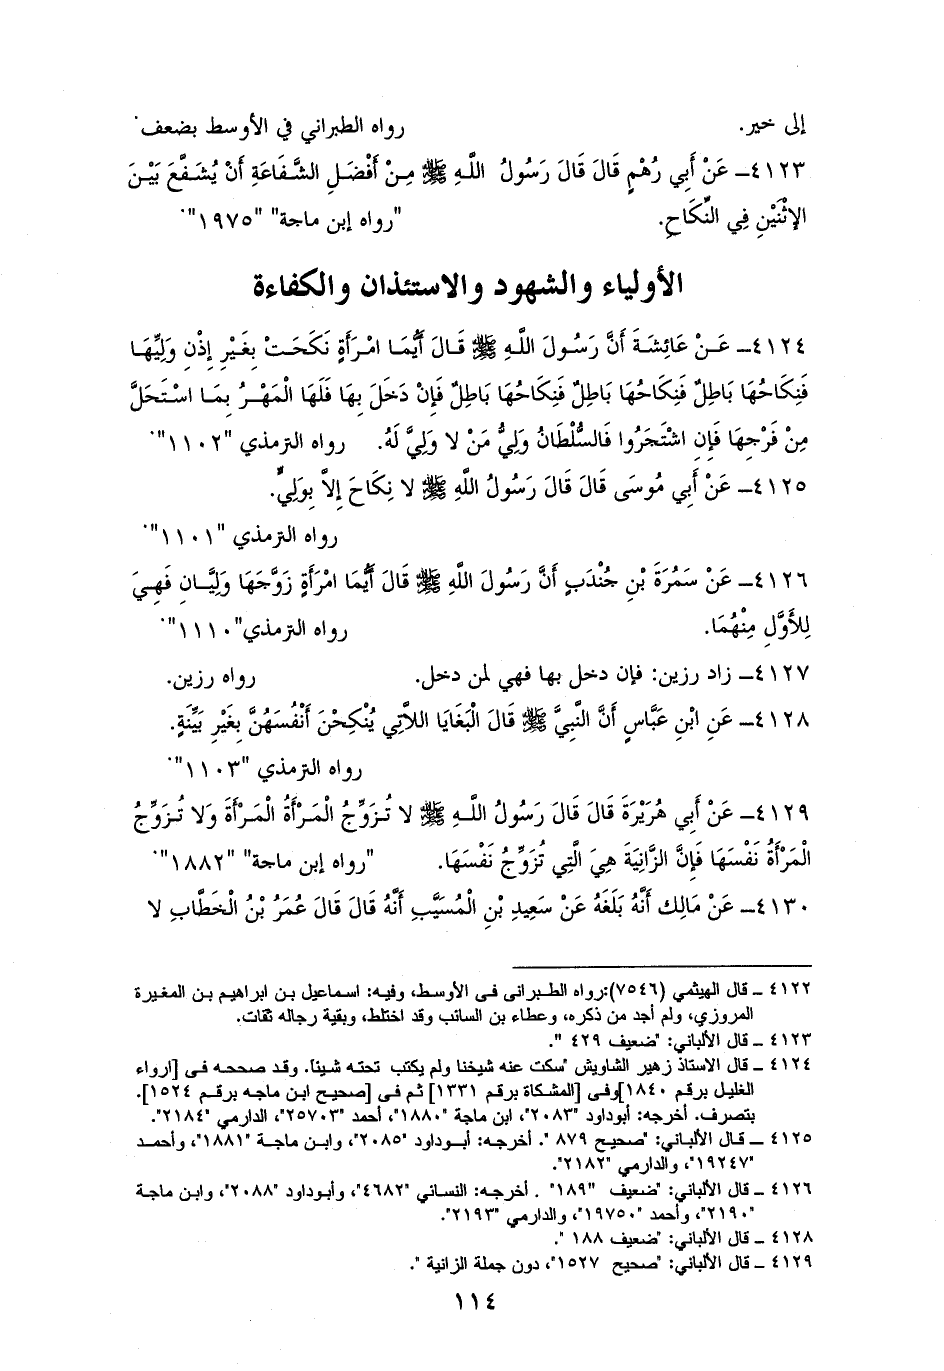 إلى خير. رواه الطبراني في الأوسط بضعف.
٤١٢٣ــ عَنْ أَبِي رُهْمٍ قَالَ قَالَ رَسُولُ اللَّهِ ﷺ مِنْ أَفْضَلِ الشَّفَاعَةِ أَنْ يُشَفَّعَ بَيْنَ
الإِثْنَيْنِ فِي النِّكَاحِ. "رواه إبن ماجة" "١٩٧٥".
الأولياء والشهود والاستئذان والكفاءة
٤١٢٤ــ عَنْ عَائِشَةَ أَنَّ رَسُولَ اللَّهِ ﷺ قَالَ أَيُّمَا امْرَأَةٍ نَكَحَتْ بِغَيْرِ إِذْنِ وَلِيِّهَا
فَنِكَاحُهَا بَاطِلٌ فَنِكَاحُهَا بَاطِلٌ فَنِكَاحُهَا بَاطِلٌ فَإِنْ دَخَلَ بِهَا فَلَهَا الْمَهْرُ بِمَا اسْتَحَلَّ
مِنْ فَرْجِهَا فَإِنِ اشْتَجَرُوا فَالسُّلْطَانُ وَلِيُّ مَنْ لا وَلِيَّ لَهُ. رواه الترمذي "١١٠٢".
٤١٢٥ــ عَنْ أَبِي مُوسَى قَالَ قَالَ رَسُولُ اللَّهِ ﷺ لا نِكَاحَ إِلاَّ بِوَلِيٍّ.
رواه الترمذي "١١٠١".
٤١٢٦ــ عَنْ سَمُرَةَ بْنِ جُنْدَبٍ أَنَّ رَسُولَ اللَّهِ ﷺ قَالَ أَيُّمَا امْرَأَةٍ زَوَّجَهَا وَلِيَّانِ فَهِيَ
لِلأَوَّلِ مِنْهُمَا. رواه الترمذي"١١١٠".
٤١٢٧ــ زاد رزين: فإن دخل بها فهي لمن دخل. رواه رزين.
٤١٢٨ــ عَنِ ابْنِ عَبَّاسٍ أَنَّ النَّبِيَّ ﷺ قَالَ الْبَغَايَا اللاَّتِي يُنْكِحْنَ أَنْفُسَهُنَّ بِغَيْرِ بَيِّنَةٍ.
رواه الترمذي "١١٠٣".
٤١٢٩ــ عَنْ أَبِي هُرَيْرَةَ قَالَ قَالَ رَسُولُ اللَّهِ ﷺ لا تُزَوِّجُ الْمَرْأَةُ الْمَرْأَةَ وَلا تُزَوِّجُ
الْمَرْأَةُ نَفْسَهَا فَإِنَّ الزَّانِيَةَ هِيَ الَّتِي تُزَوِّجُ نَفْسَهَا. "رواه إبن ماجة" "١٨٨٢".
٤١٣٠ــ عَنْ مَالِك أَنَّهُ بَلَغَهُ عَنْ سَعِيدِ بْنِ الْمُسَيَّبِ أَنَّهُ قَالَ قَالَ عُمَرُ بْنُ الْخَطَّابِ لا
٤١٢٢ ــ قال الهيثمي (٧٥٤٦):رواه الطبرانى فى الأوسط، وفيه: اسماعيل بن ابراهيم بن المغيرة
المروزي، ولم أجد من ذكره، وعطاء بن السائب وقد اختلط، وبقية رجاله ثقات.
٤١٢٣ ــ قال الألباني: "ضعيف ٤٢٩ ".
٤١٢٤ ــ قال الاستاذ زهير الشاويش "سكت عنه شيخنا ولم يكتب تحته شيئاً. وقد صححه فى [ارواء
الغليل برقم ١٨٤٠]وفى [المشكاة برقم ١٣٣١] ثم فى [صحيح ابن ماجه برقم ١٥٢٤].
بتصرف. أخرجه: أبوداود "٢٠٨٣"، ابن ماجة "١٨٨٠"، أحمد "٢٥٧٠٣"، الدارمي "٢١٨٤".
٤١٢٥ ــ قال الألباني: "صحيح ٨٧٩ ". أخرجه: أبوداود "٢٠٨٥"، وابن ماجة "١٨٨١"، وأحمد
"١٩٢٤٧"، والدارمي "٢١٨٢".
٤١٢٦ ــ قال الألباني: "ضعيف "١٨٩" . أخرجه: النسائي "٤٦٨٢"، وأبوداود "٢٠٨٨"، وابن ماجة
"٢١٩٠"، وأحمد "١٩٧٥٠"، والدارمي "٢١٩٣".
٤١٢٨ ــ قال الألباني: "ضعيف ١٨٨ ".
٤١٢٩ ــ قال الألباني: "صحيح ١٥٢٧"، دون جملة الزانية ".
١١٤